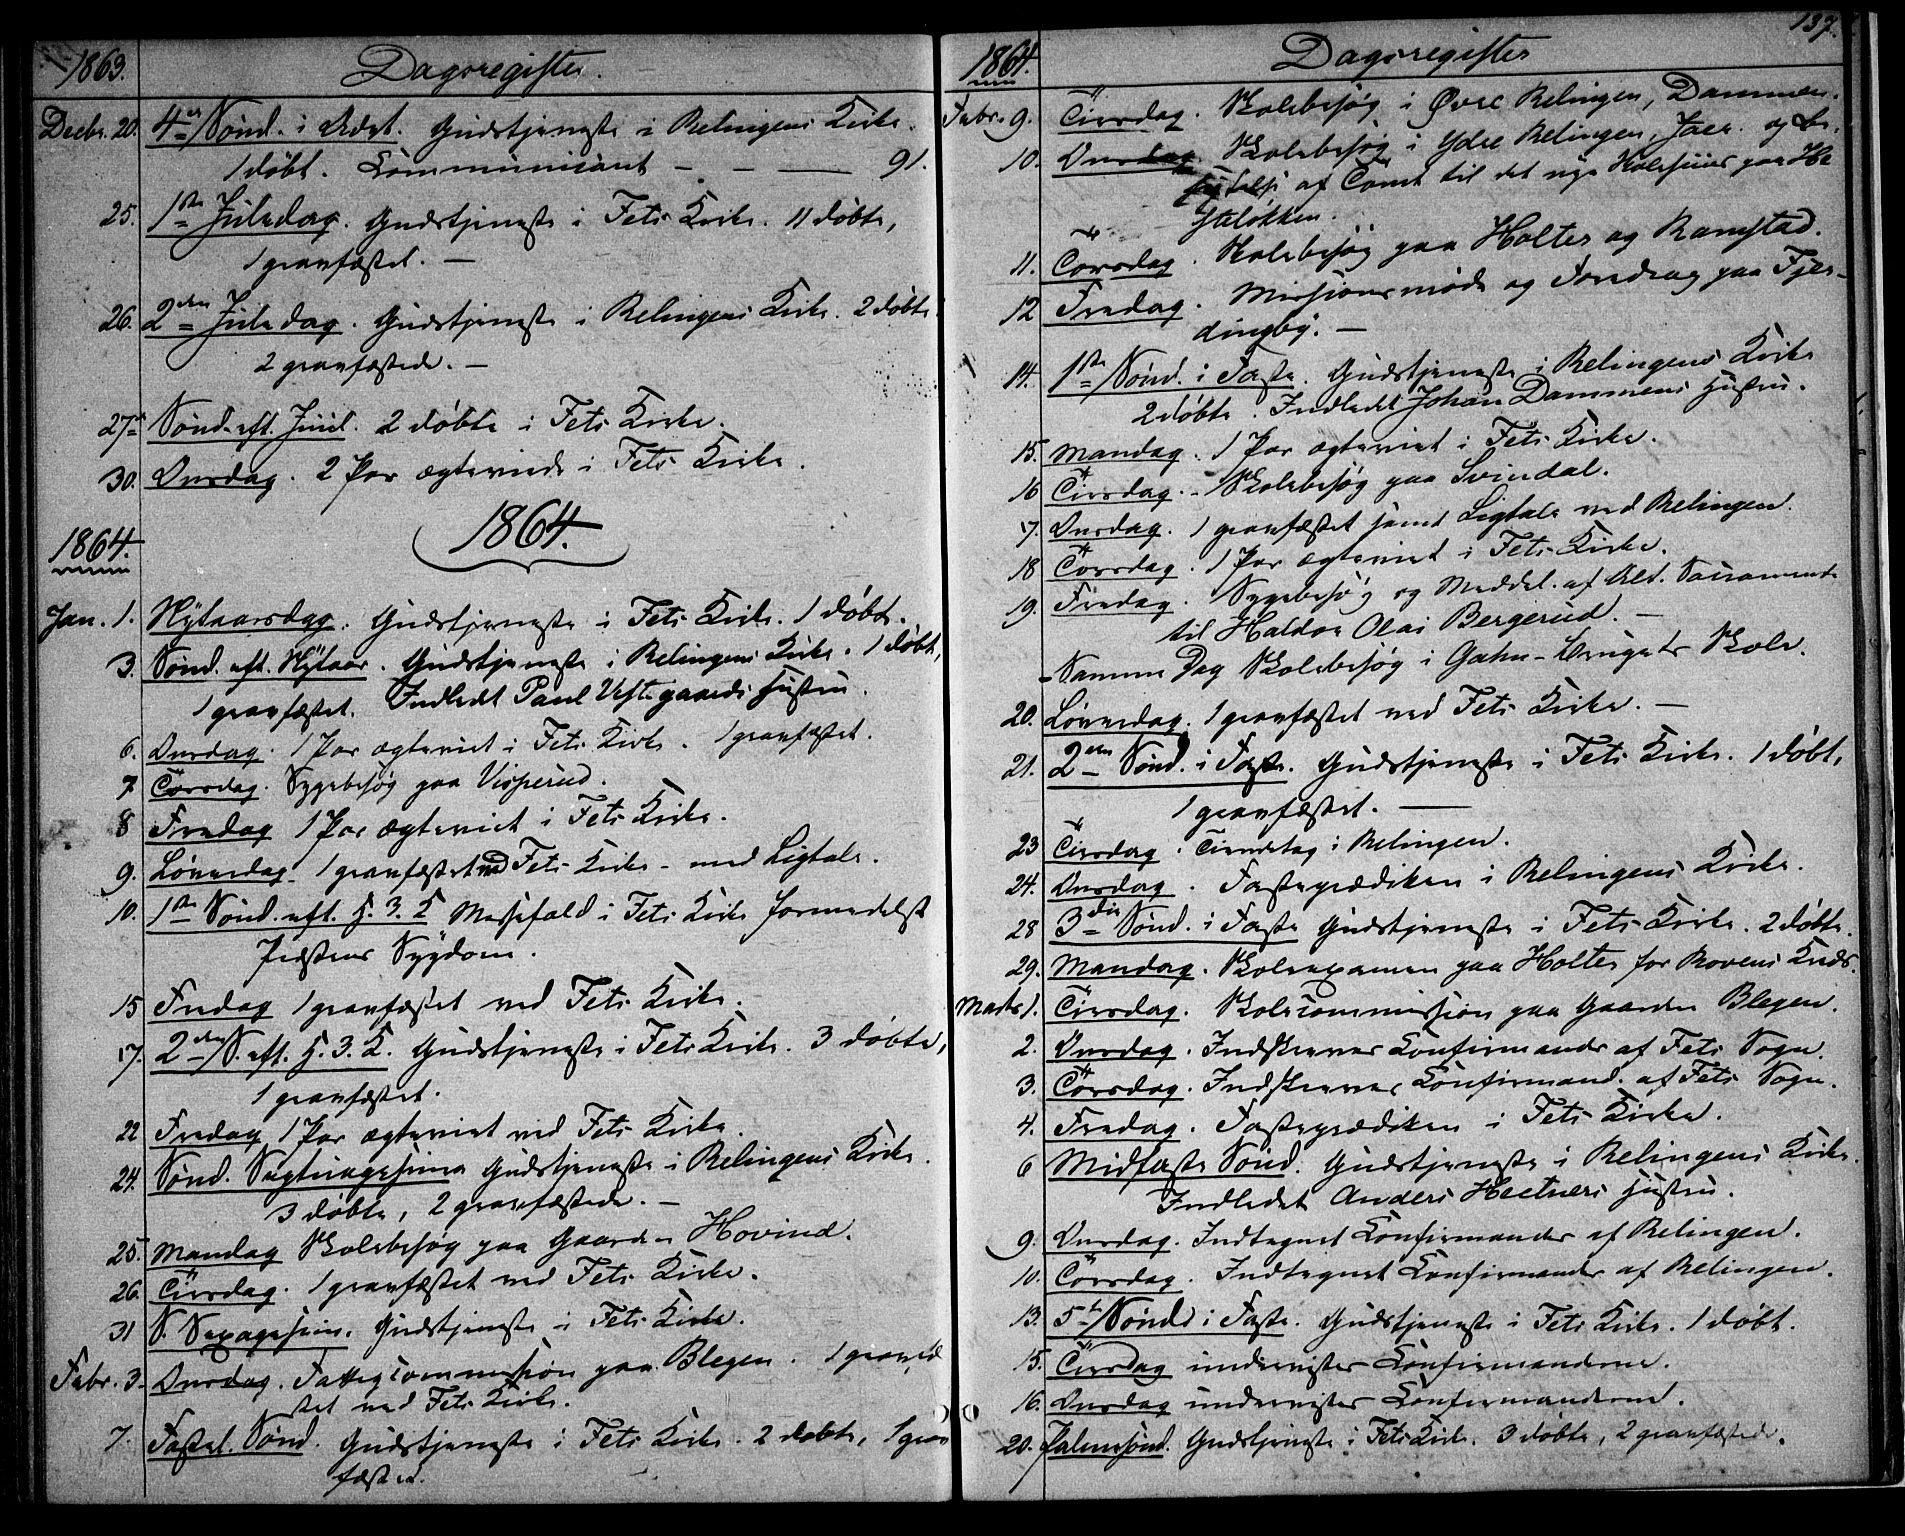 1863. Dagsregister.
Decbr. 20. 4de Sønd. i Advt. Gudstjeneste i Relingens Kirke.
1 døbt. Communicant — — — 91.
25. 1ste Juledag. Gudstjeneste i Fets Kirke. 11 døbte,
1 gravfæstet. —
26. 2den Juledag. Gudstjeneste i Relingens Kirke. 2 døbte
2 gravfæstede. —
27de Sønd. eft. Juul. 2 døbte i Fets Kirke.
30. Onsdag. 2 Par ægteviede i Fets Kirke.
1864. 1864.
Jan. 1. Nytaarsdag. Gudstjeneste i Fets Kirke. 1 døbt.
3. Sønd. eft. Nytaar. Gudstjeneste i Relingens Kirke. 1 døbt,
1 gravfæstet. Indledt Paul Vestegaards Hustru.
6. Onsdag. 1 Par ægteviet i Fets Kirke. 1 gravfæstet.
7 Torsdag. Sygebesøg paa Visperud.
8 Fredag 1 Par ægteviet i Fets Kirke.
9. Løverdag 1 gravfæstet ved Fets Kirke – med Ligtale.
10. 1ste Sønd. eft. H. 3. K. Messefald i Fets Kirke formedelst
Præstens Sygdom.
15 Fredag 1 gravfæstet ved Fets Kirke.
17. 2den S. eft. H. 3. K. Gudstjeneste i Fets Kirke. 3 døbte,
1 gravfæstet.
22 Fredag 1 Par ægteviet ved Fets Kirke.
24. Sønd. Septuagesima Gudstjeneste i Relingens Kirke.
3 døbte, 2 gravfæstede. —
25. Mandag Skolebesøg paa Gaarden Hovind.
26. Tirsdag. 1 gravfæstet ved Fets Kirke.
31 S. Sexagesim. Gudstjeneste i Fets Kirke.
Febr. 3. Onsdag. Fattigcommission paa Blegen. 1 gravfæ
stet ved Fets Kirke.
7. Fastel. Sønd. Gudstjeneste i Fets Kirke. 2 døbte, 1 grav
fæstet.
1864. Dagsregister 137.
Febr. 9. Tirsdag. Skolebesøg i Øvre Relingen, Dammen.
10. Onsdag Skolebesøg i Ydre Relingen, Jaer. og Be-
sigtelse af Tomt til det nye Skolehuus paa
Støløkken.
11. Torsdag. Skolebesøg paa Holter og Ramstad.
12 Fredag. Missionsmøde og Foredrag paa Fjer-
dingby. —
14. 1ste Sønd. i Faste. Gudstjeneste i Relingens Kirke
2 døbte. Indledet Johan Dammens Hustru.
15. Mandag. 1 Par ægteviet i Fets Kirke.
16 Tirsdag. Skolebesøg paa Svindal.
17. Onsdag. 1 gravfæstet samt Ligtale ved Relingen.
18 Torsdag. 1 Par ægteviet i Fets Kirke.
19. Fredag. Sygebesøg og Meddel. af Alt. Sacramente
til Haldor Olai Bergerud. —
Samme Dag Skolebesøg i Gahn Skole.
20. Løverdag. 1 gravfæstet ved Fets Kirke. —
21. 2den Sønd. i Faste. Gudstjeneste i Fets Kirke. 1 døbt,
1 gravfæstet. —
23 Tirsdag. Tiendetag i Relingen.
24. Onsdag. Fasteprædiken i Relingens Kirke.
28 3die Sønd. i Faste Gudstjeneste i Fets Kirke. 2 døbte.
29. Mandag. Skoleexamen paa Holter for Rovens Kreds.
Marts 1. Tirsdag. Skolecommission paa Gaarden Blegen.
2. Onsdag. Indskrevne Confirmander af Fets Sogn.
3. Torsdag. Indskrevne Confirmand. af Fets Sogn.
4. Fredag. Fasteprædiken i Fets Kirke.
6 Midfaste Sønd. Gudstjeneste i Relingens Kirke.
Indledet Anders Hectners Hustru.
9. Onsdag. Indtegnet Confirmander af Relingen.
10. Torsdag. Indtegnet Confirmander af Relingen.
13. 5te Sønd. i Faste. Gudstjeneste i Fets Kirke. 1 døbt.
15. Tirsdag undervistes Confirmanderne.
16. Onsdag undervistes Confirmanderne.
20. Palmesønd. Gudstjeneste i Fets Kirke. 3 døbte, 2 gravfæstede.